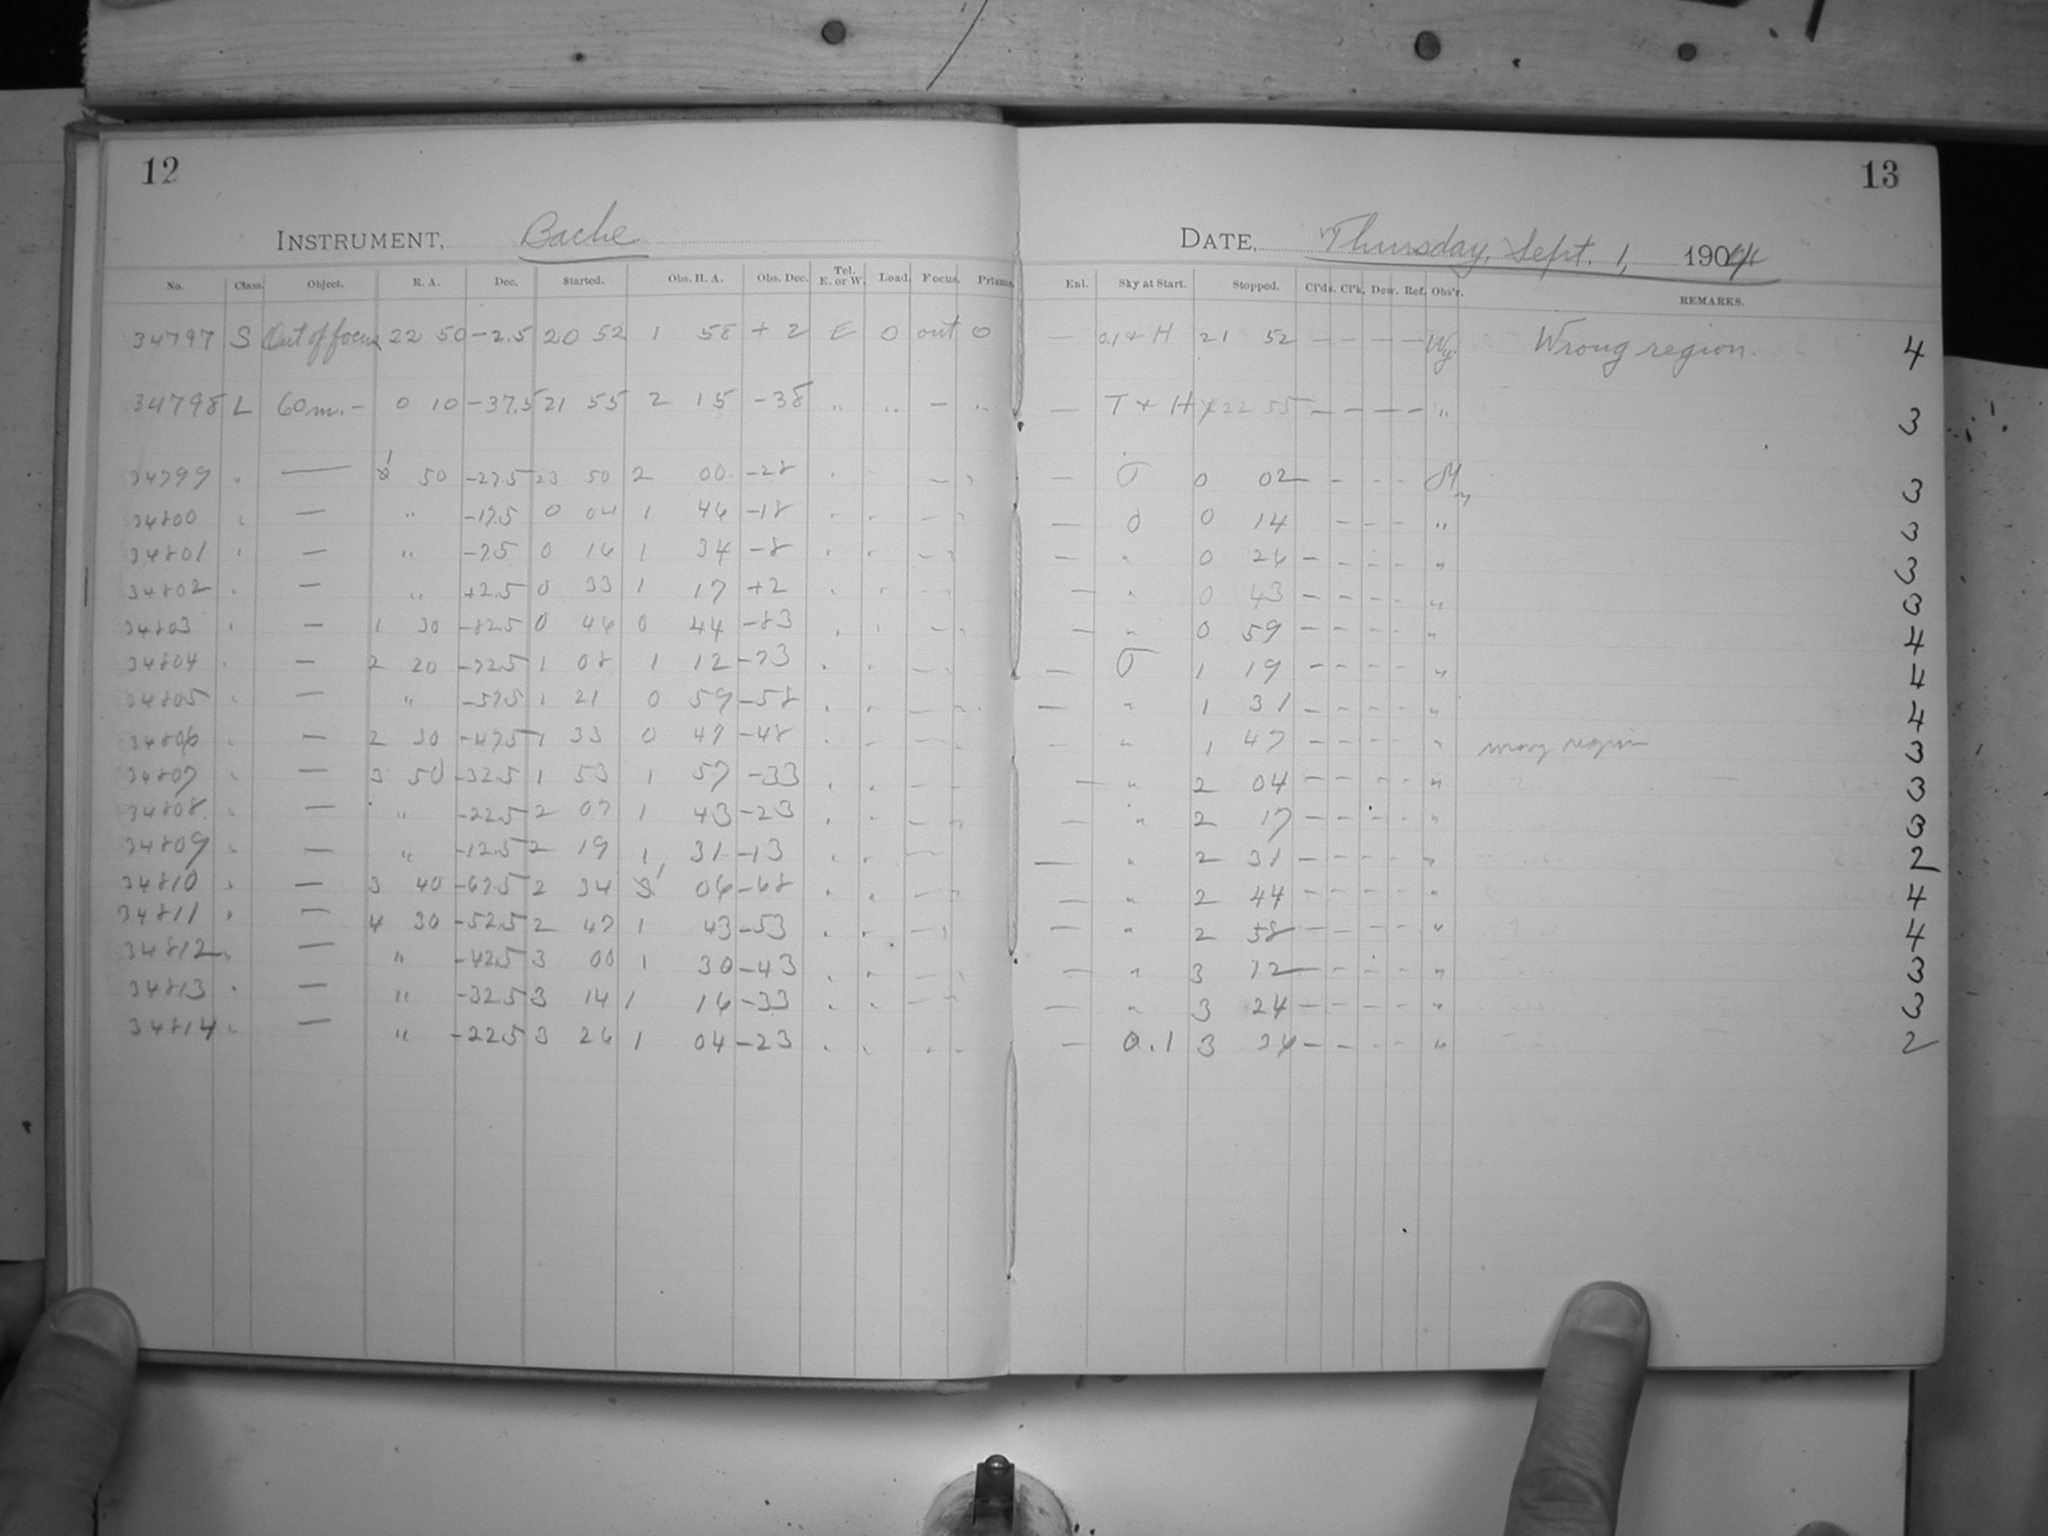 12
13
INSTRUMENT, Bache
DATE, Thursday, Sept. 1, 1904
No. Class. Object. R. A. Dec. Started. Obs. H. A. Obs. Dec. Tel. E. or W. Load. Focus. Prisms. Enl. Sky at Start. Stopped. Cl'ds. Cl'k. Dew. Ref. Obs'r. REMARKS.
34797 S Out of focus 22 50 -2.5 20 52 1 58 + 2 E 0 out 0 — 0.1 + H 21 52 — — — — Wy. Wrong region. 4
34798 L 60m. - 0 10 -37.5 21 55 2 15 -38 " " — " — T + H 22 55 — — — — " 3
34799 " — 1 50 -27.5 23 50 2 00 -28 " " — " — 0 02 — — — — 3
34800 " — " -17.5 0 04 1 46 -18 " " — " — 0 0 14 — — — " 3
34801 " — " -7.5 0 16 1 34 -8 " " — " — " 0 26 — — — — " 3
34802 " — " +2.5 0 33 1 17 +2 " " — " — " 0 43 — — — — " 3
34803 " — 1 30 -82.5 0 46 0 44 -83 " " — " — " 0 59 — — — — " 4
34804 " — 2 20 -72.5 1 08 1 12 -73 " " — " — 1 19 — — — — " 4
34805 " — " -57.5 1 21 0 59 -58 " " — " — " 1 31 — — — — " 4
34806 " — 2 30 -47.5 1 33 0 47 -48 " " — " — " 1 47 — — — — " wrong region 3
34807 " — 3 50 -32.5 1 53 1 57 -33 " " — " — " 2 04 — — — — " 3
34808 " — " -22.5 2 07 1 43 -23 " " — " — " 2 17 — — — — " 3
34809 " — " -12.5 2 19 1 31 -13 " " — " — " 2 31 — — — — " 2
34810 " — 3 40 -67.5 2 34 1 06 -68 " " — " — " 2 44 — — — — " 4
34811 " — 4 30 -52.5 2 47 1 43 -53 " " — " — " 2 58 — — — — " 4
34812 " — " -42.5 3 00 1 30 -43 " " — " — " 3 12 — — — — " 3
34813 " — " -32.5 3 14 1 16 -33 " " — " — " 3 24 — — — — " 3
34814 " — " -22.5 3 26 1 04 -23 " " " " — 0.1 3 — — — — " 2